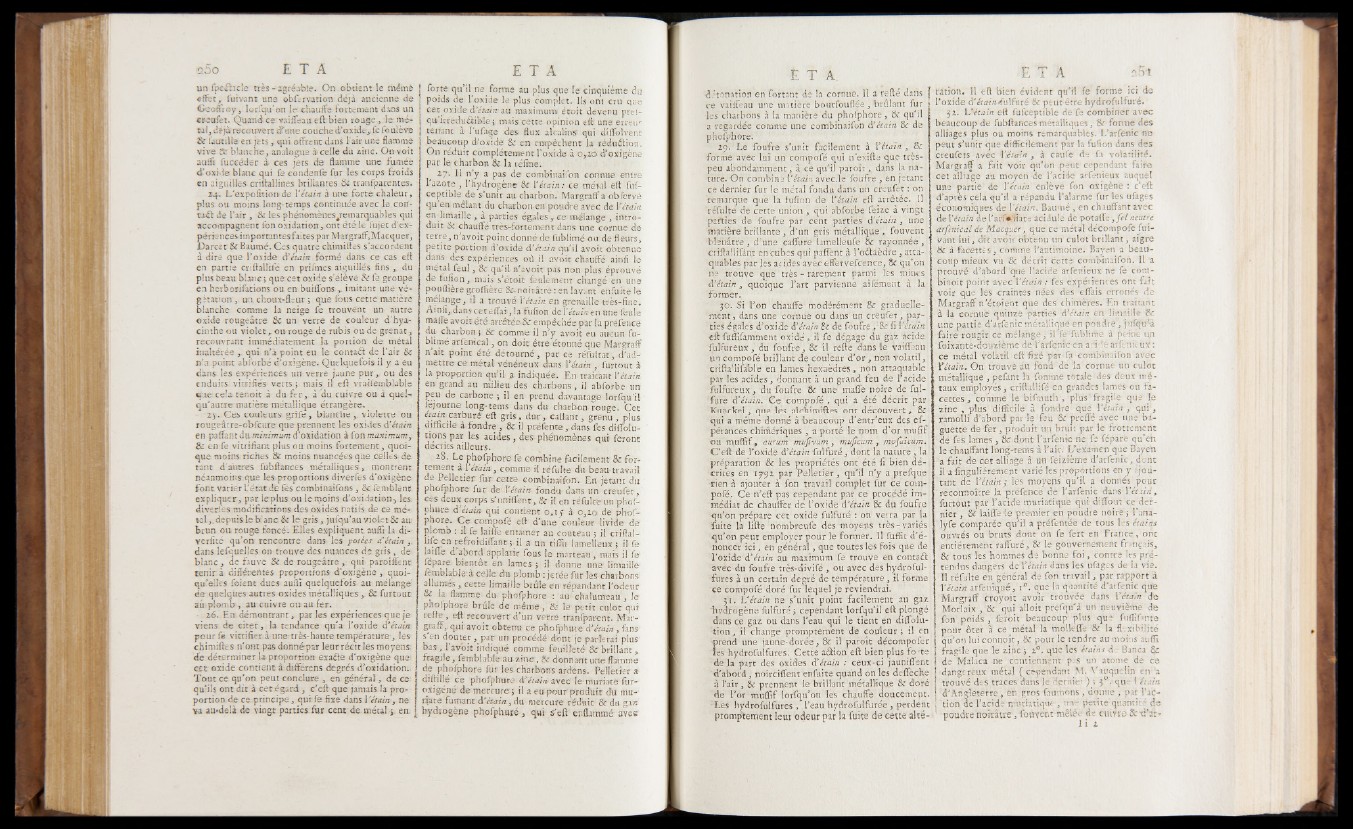 250 E T A
un spectacle très-agréable. On obtient le même
effet, suivant une observation déjà ancienne de
Geoffroy, lorsqu'on le chauffe fortement dans un
creuset. Quand ce vaisseau est bien rouge, le mé-
tal, déjà recouvert d'une couche d'oxide, se soulève
& sautille en jets, qui offrent dans l'air une flamme
vive & blanche, analogue à celle du zinc. On voit
aussi succéder à ces jets de flamme une fumée
d'oxide blanc qui se condense sur les corps froids
en aiguilles cristallines brillantes & transparentes.
24. L'exposition de l'étain à une forte chaleur,
plus ou moins long-temps continuée avec le con-
tact de l'air, & les phénomènes remarquables qui
accompagnent son oxidation, ont été le sujet d'ex-
périences importantes faites par Margraff, Macquer,
Darcet & Baumé. Ces quatre chimistes s'accordent
à dire que l'oxide d'étain formé dans ce cas est
en partie cristallisé en prismes aiguillés fins, du
plus beau blanc; que cet oxide s'élève & se groupe
en herborisations ou en buissons, imitant une vé-
gétation, un choux-fleur; que sous cette matière
blanche comme la neige se trouvent un autre
oxide rougeâtre & un verre de couleur d'hya-
cinthe ou violet, ou rouge de rubis ou de grenat,
recouvrant immédiatement la portion de métal
inaltérée, qui n'a point eu le contact de l'air &
n'a point absorbé d'oxigène. Quelquefois il y a eu
dans les expériences un verre jaune pur, ou des
enduits vitrifiés verts; mais il est vraisemblable
que cela tenoit à du fer, à du cuivre ou à quel-
qu'autre matière métallique étrangère.
25. Ces couleurs grise, blanche, violette ou
rougeâtre-obscure que prennent les oxides d'étain
en passant du minimum d'oxidation à son maximum,
& en se vitrifiant plus ou moins fortement, quoi-
que moins riches & moins nuancées que celles de
tant d'autres substances métalliques, montrent
néanmoins que les proportions diverses d'oxigène
font varier l'état de ses combinaisons, & semblent
expliquer, par le plus ou le moins d'oxidation, les
diverses modifications des oxides natifs de ce mé-
tal, depuis le blanc & le gris, jusqu'au violet & au
brun ou rouge foncé. Elles expliquent aussi la di-
versité qu'on rencontre dans les potées d'étain,
dans lesquelles on trouve des nuances de gris, de
blanc, de fauve & de rougeâtre, qui paroissent
tenir à différentes proportions d'oxigène, quoi-
qu'elles soient dues aussi quelquefois au mélange
de quelques autres oxides métalliques, & surtout
au plomb, au cuivre ou au fer.
26. En démontrant, par les expériences que je
viens de citer, la tendance qu'a l'oxide d'étain
pour se vitrifier à une très-haute température, les
chimistes n'ont pas donné par leur récit les moyens
de déterminer la proportion exacte d'oxigène que
cet oxide contient à différens degrés d'oxidation.
Tout ce qu'on peut conclure, en général, de ce
qu'ils ont dit à cet égard, c'est que jamais la pro-
portion de ce principe, qui se fixe dans l'étain, ne
va au-delà de vingt parties sur cent de métal; en
E T A
sorte qu'il ne forme au plus que le cinquième du
poids de l'oxide le plus complet. Ils ont cru que
cet oxide d'étain au maximum étoit devenu pres-
qu'irréductible; mais cette opinion est une erreur
tenant à l'usage des flux alcalins qui dissolvent
beaucoup d'oxide & en empêchent la réduction.
On réduit complétement l'oxide à 0,20 d'oxigène
par le charbon & la résine.
27. Il n'y a pas de combinaison connue entre
l'azote, l'hydrogène & l'étain: ce métal est sus-
ceptible de s'unir au charbon. Margraff a observé
qu'en mêlant du charbon en poudre avec de l'étain
en limaille, à parties égales, ce mélange, intro-
duit & chauffé très-fortement dans une cornue de
terre, n'avoit point donné de sublimé ou de fleurs,
petite portion d'oxide d'étain qu'il avoit obtenue
dans des expériences où il avoit chauffé ainsi le
métal seul, & qu'il n'avoit pas non plus éprouvé
de fusion, mais s'étoit seulement changé en une
poussière grossière & noirâtre: en lavant ensuite le
mélange, il a trouvé l'étain en grenaille très-fine.
Ainsi, dans cet essai, la fusion de l'étain en une seule
masse avoit été arrêtée & empêchée par la présence
du charbon; & comme il n'y avoit eu aucun su-
blimé arsenical, on doit être étonné que Margraff
n'ait point été détourné, par ce résultat, d'ad-
mettre ce métal vénéneux dans l'étain, surtout à
la proportion qu'il a indiquée. En traitant l'étain
en grand au milieu des charbons, il absorbe un
peu de carbone; il en prend davantage lorsqu'il
séjourne long-tems dans du charbon rouge. Cet
étain carburé est gris, dur, cassant, grenu, plus
difficile à fondre, & il présente, dans ses dissolu-
tions par les acides, des phénomènes qui seront
décrits ailleurs.
28. Le phosphore se combine facilement & for-
tement à l'étain, comme il résulte du beau travail
de Pelletier sur cette combinaison. En jetant du
phosphore sur de l'étain fondu dans un creuset,
ces deux corps s'unissent, & il en résulte un phos-
phure d'étain qui contient 0,15 à 0,20 de phos-
phore. Ce composé est d'une couleur livide de
plomb: il se laisse entamer au couteau; il cristal-
lise en refroidissant; il a un tissu lamelleux; il se
laisse d'abord applatir sous le marteau, mais il se
sépare bientôt en lames; il donne une limaille
semblable à celle du plomb: jetée sur les charbons
allumés, cette limaille brûle en répandant l'odeur
& la flamme du phosphore: au chalumeau, le
phosphore brûle de même, & le petit culot qui
reste, est recouvert d'un verre transparent. Mar-
graff, qui avoit obtenu ce phosphure d'étain, sans
s'en douter, par un procédé dont je parlerai plus
bas, l'avoit indiqué comme feuilleté & brillant,
fragile, semblable au zinc, & donnant une flamme
de phosphore sur les charbons ardens. Pelletier a
distillé ce phosphure d'étain avec le muriate sur-
oxigéné de mercure; il a eu pour produit du mu-
riate fumant d'étain, du mercure réduit & du gaz
hydrogène phosphuré, qui s'est enflammé avec
E T A
détonation en sortant de la cornue. Il a resté dans
ce vaisseau une matière boursouflée, brûlant sur
les charbons à la manière du phosphore, & qu'il
a regardée comme une combinaison d'étain & de
phosphore.
29. Le soufre s'unit facilement à l'étain, &
forme avec lui un composé qui n'existe que très-
peu abondamment, à ce qu'il paroît, dans la na-
ture. On combine l'étain avec le soufre, en jetant
ce dernier sur le métal fondu dans un creuset: on
remarque que la fusion de l'étain est arrêtée. Il
résulte de cette union, qui absorbe seize à vingt
parties de soufre par cent parties d'étain, une
matière brillante, d'un gris métallique, souvent
bleuâtre, d'une cassure lamelleuse & rayonnée,
cristallisant en cubes qui passent à l'octaèdre, atta-
quables par les acides avec effervescence, & qu'on
ne trouve que très-rarement parmi les mines
d'étain, quoique l'art parvienne aisément à la
former.
30. Si l'on chauffe modérément & graduelle-
ment, dans une cornue ou dans un creuset, par-
ties égales d'oxide d'étain & de soufre, & si l'étain
est suffisamment oxidé, il se dégage du gaz acide
sulfureux, du soufre, & il reste dans le vaisseau
un composé brillant de couleur d'or, non volatil,
cristallisable en lames hexaèdres, non attaquable
par les acides, donnant à un grand feu de l'acide
sulfureux, du soufre & une masse noire de sul-
fure d'étain. Ce composé, qui a été décrit par
Kunckel, que les alchimistes ont découvert, &
qui a même donné à beaucoup d'entr'eux des es-
pérances chimériques, a porté le nom d'or mussif
ou mussif, aurum musivum, musicum, mosaïcum.
C'est de l'oxide d'étain sulfuré, dont la nature, la
préparation & les propriétés ont été si bien dé-
crites en 1792 par Pelletier, qu'il n'y a presque
rien à ajouter à son travail complet sur ce com-
posé. Ce n'est pas cependant par ce procédé im-
médiat de chauffer de l'oxide d'étain & du soufre
qu'on prépare cet oxide sulfuré: on verra par la
suite la liste nombreuse des moyens très-variés
qu'on peut employer pour le former. Il suffit d'é-
noncer ici, en général, que toutes les fois que de
l'oxide d'étain au maximum se trouve en contact
avec du soufre très-divisé, ou avec des hydrosul-
fures à un certain degré de température, il forme
ce composé doré sur lequel je reviendrai.
31. L'étain ne s'unit point facilement au gaz
hydrogène sulfuré; cependant lorsqu'il est plongé
dans ce gaz ou dans l'eau qui le tient en dissolu-
tion, il change promptement de couleur; il en
prend une jaune-dorée, & il paroît décomposer
les hydrosulfures. Cette action est bien plus forte
de la part des oxides d'étain: ceux-ci jaunissent
d'abord, noircissent ensuite quand on les dessèche
à l'air, & prennent le brillant métallique & doré
de l'or mussif lorsqu'on les chauffe doucement.
Les hydrosulfures, l'eau hydrosulfurée, perdent
promptement leur odeur par la suite de cette alté-
E T A 251
ration. Il est bien évident qu'il se forme ici de
l'oxide d'étain sulfuré & peut-être hydrosulfuré.
32. L'étain est susceptible de se combiner avec
beaucoup de substances métalliques, & forme des
alliages plus ou moins remarquables. L'arsenic ne
peut s'unir que difficilement par la fusion dans des
creusets avec l'étain, à cause de sa volatilité.
Margraff a fait voir qu'on peut cependant faire
cet alliage au moyen de l'acide arsenieux auquel
une partie de l'étain enlève son oxigène: c'est
d'après cela qu'il a répandu l'alarme sur les usages
économiques de l'étain. Baumé, en chauffant avec
de l'étain de l'arseniate acidule de potasse, sel neutre
arsenical de Macquer, que ce métal décompose sui-
vant lui, dit avoir obtenu un culot brillant, aigre
& à facettes, comme l'antimoine. Bayen a beau-
coup mieux vu & décrit cette combinaison. Il a
prouvé d'abord que l'acide arsenieux ne se com-
binoit point avec l'étain: ses expériences ont fait
voir que les craintes nées des essais erronés de
Margraff n'étoient que des chimères. En traitant
à la cornue quinze parties d'étain en limaille &
une partie d'arsenic métallique en poudre, jusqu'à
faire rougir ce mélange, il se sublime à peine un
soixante-douzième de l'arsenic en acide arsenieux:
ce métal volatil est fixé par sa combinaison avec
l'étain. On trouve au fond de la cornue un culot
métallique, pesant la somme totale des deux mé-
taux employés, cristallisé en grandes lames ou fa-
cettes, comme le bismuth, plus fragile que le
zinc, plus difficile à fondre que l'étain, qui,
ramolli d'abord par le feu & pressé avec une ba-
guette de fer, produit un bruit par le frottement
de ses lames, & dont l'arsenic ne se sépare qu'en
le chauffant long-tems à l'air. L'examen que Bayen
a fait de cet alliage à un seizième d'arsenic, dont
il a singulièrement varié les proportions en y ajou-
tant de l'étain; les moyens qu'il a donnés pour
reconnoître la présence de l'arsenic dans l'étain,
surtout par l'acide muriatique qui dissout ce der-
nier, & laisse le premier en poudre noire; l'ana-
lyse comparée qu'il a présentée de tous les étains
ouvrés ou bruts dont on se sert en France, ont
entiérement rassuré, & le gouvernement français,
& tous les hommes de bonne foi, contre les pré-
tendus dangers de l'étain dans les usages de la vie.
Il résulte en général de son travail, par rapport à
l'étain arseniqué, 1°. que la quantité d'arsenic que
Margraff croyoit avoir trouvée dans l'étain de
Morlaix, & qui alloit presqu'à un neuvième de
son poids, seroit beaucoup plus que suffisante
pour ôter à ce métal la mollesse & la flexibilité
qu'on lui connoît, & pour le rendre au moins aussi
fragile que le zinc; 2°. que les étains de Banca &
de Malaca ne contiennent pas un atome de ce
dangereux métal (cependant M. Vauquelin en a
trouvé des traces dans le dernier); 3°. que l'étain
d'Angleterre, en gros saumons, donne, par l'ac-
tion de l'acide muriatique, une petite quantité de
poudre noirâtre, souvent mêlée de cuivre & d'ar-
I i 2